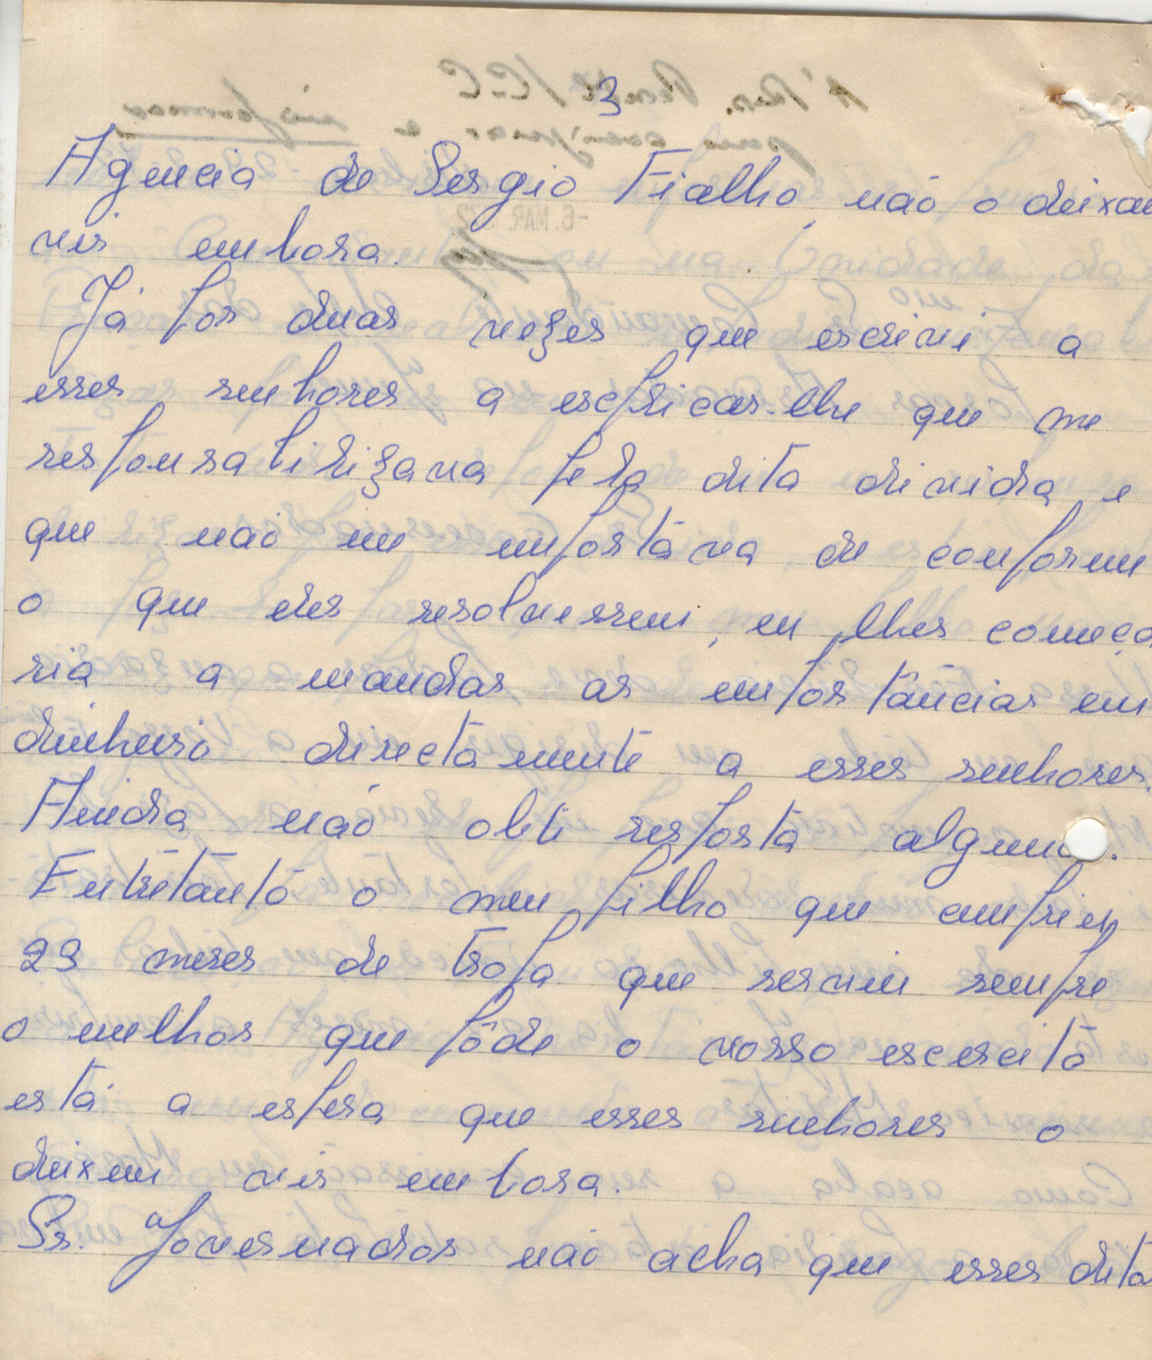 3
Agencia de Sergio Fialho, não o deixam
vir embora.
Já foi duas vezes que escrivi a
esses senhores a escpricar-lhe que me
responsabilizava pela dita divida e
que não im
portáva de conforme
o que eles resolvessem, eu lhes começa
ria a mandar as emportâncias em
dinheiro directamente a esses senhores.
Ainda não obti resposta alguma.
Entretanto o meu filho que cumpriu
23 meses de tropa que serviu sempre
o melhor que pôde o vosso escercito
está a espera que esses senhores o
deixem vir embora.
Sr. Governador não acha que esses dita